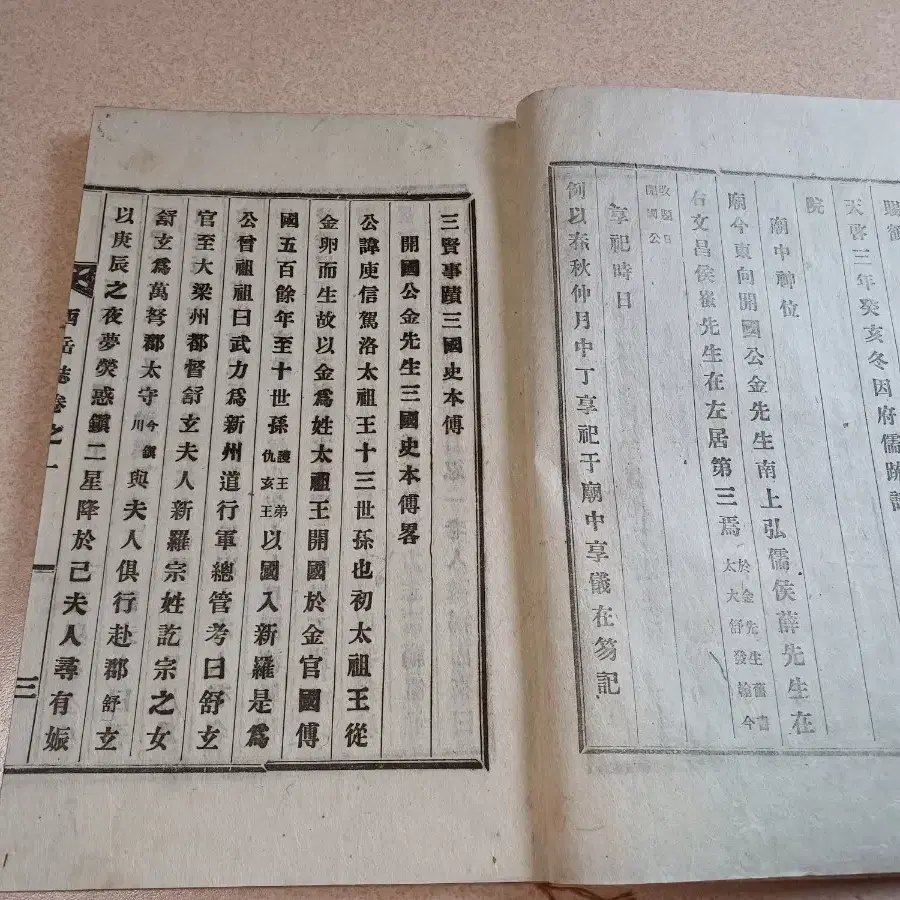 賜額
天啓三年癸亥冬因府儒疏請
院
廟中神位
廟今東向開國公金先生南上弘儒侯薛先生在
右文昌侯崔先生在左居第三焉於金先生舊書太大舒發翰今
改題曰開國公
享祀時日
例以春秋仲月中丁享祀于廟中享儀在笏記
三賢事蹟三國史本傳
開國公金先生三國史本傳畧
公諱庾信駕洛太祖王十三世孫也初太祖王從
金卵而生故以金爲姓太祖王開國於金官國傳
國五百餘年至十世孫仇亥王以國入新羅是爲
公曾祖祖曰武力爲新州道行軍總管考曰舒玄
官至大梁州都督舒玄夫人新羅宗姓訖宗之女
舒玄爲萬弩郡太守今鎭川與夫人俱行赴郡舒玄
以庚辰之夜夢熒惑鎭二星降於己夫人尋有娠
西岳誌卷之一
三